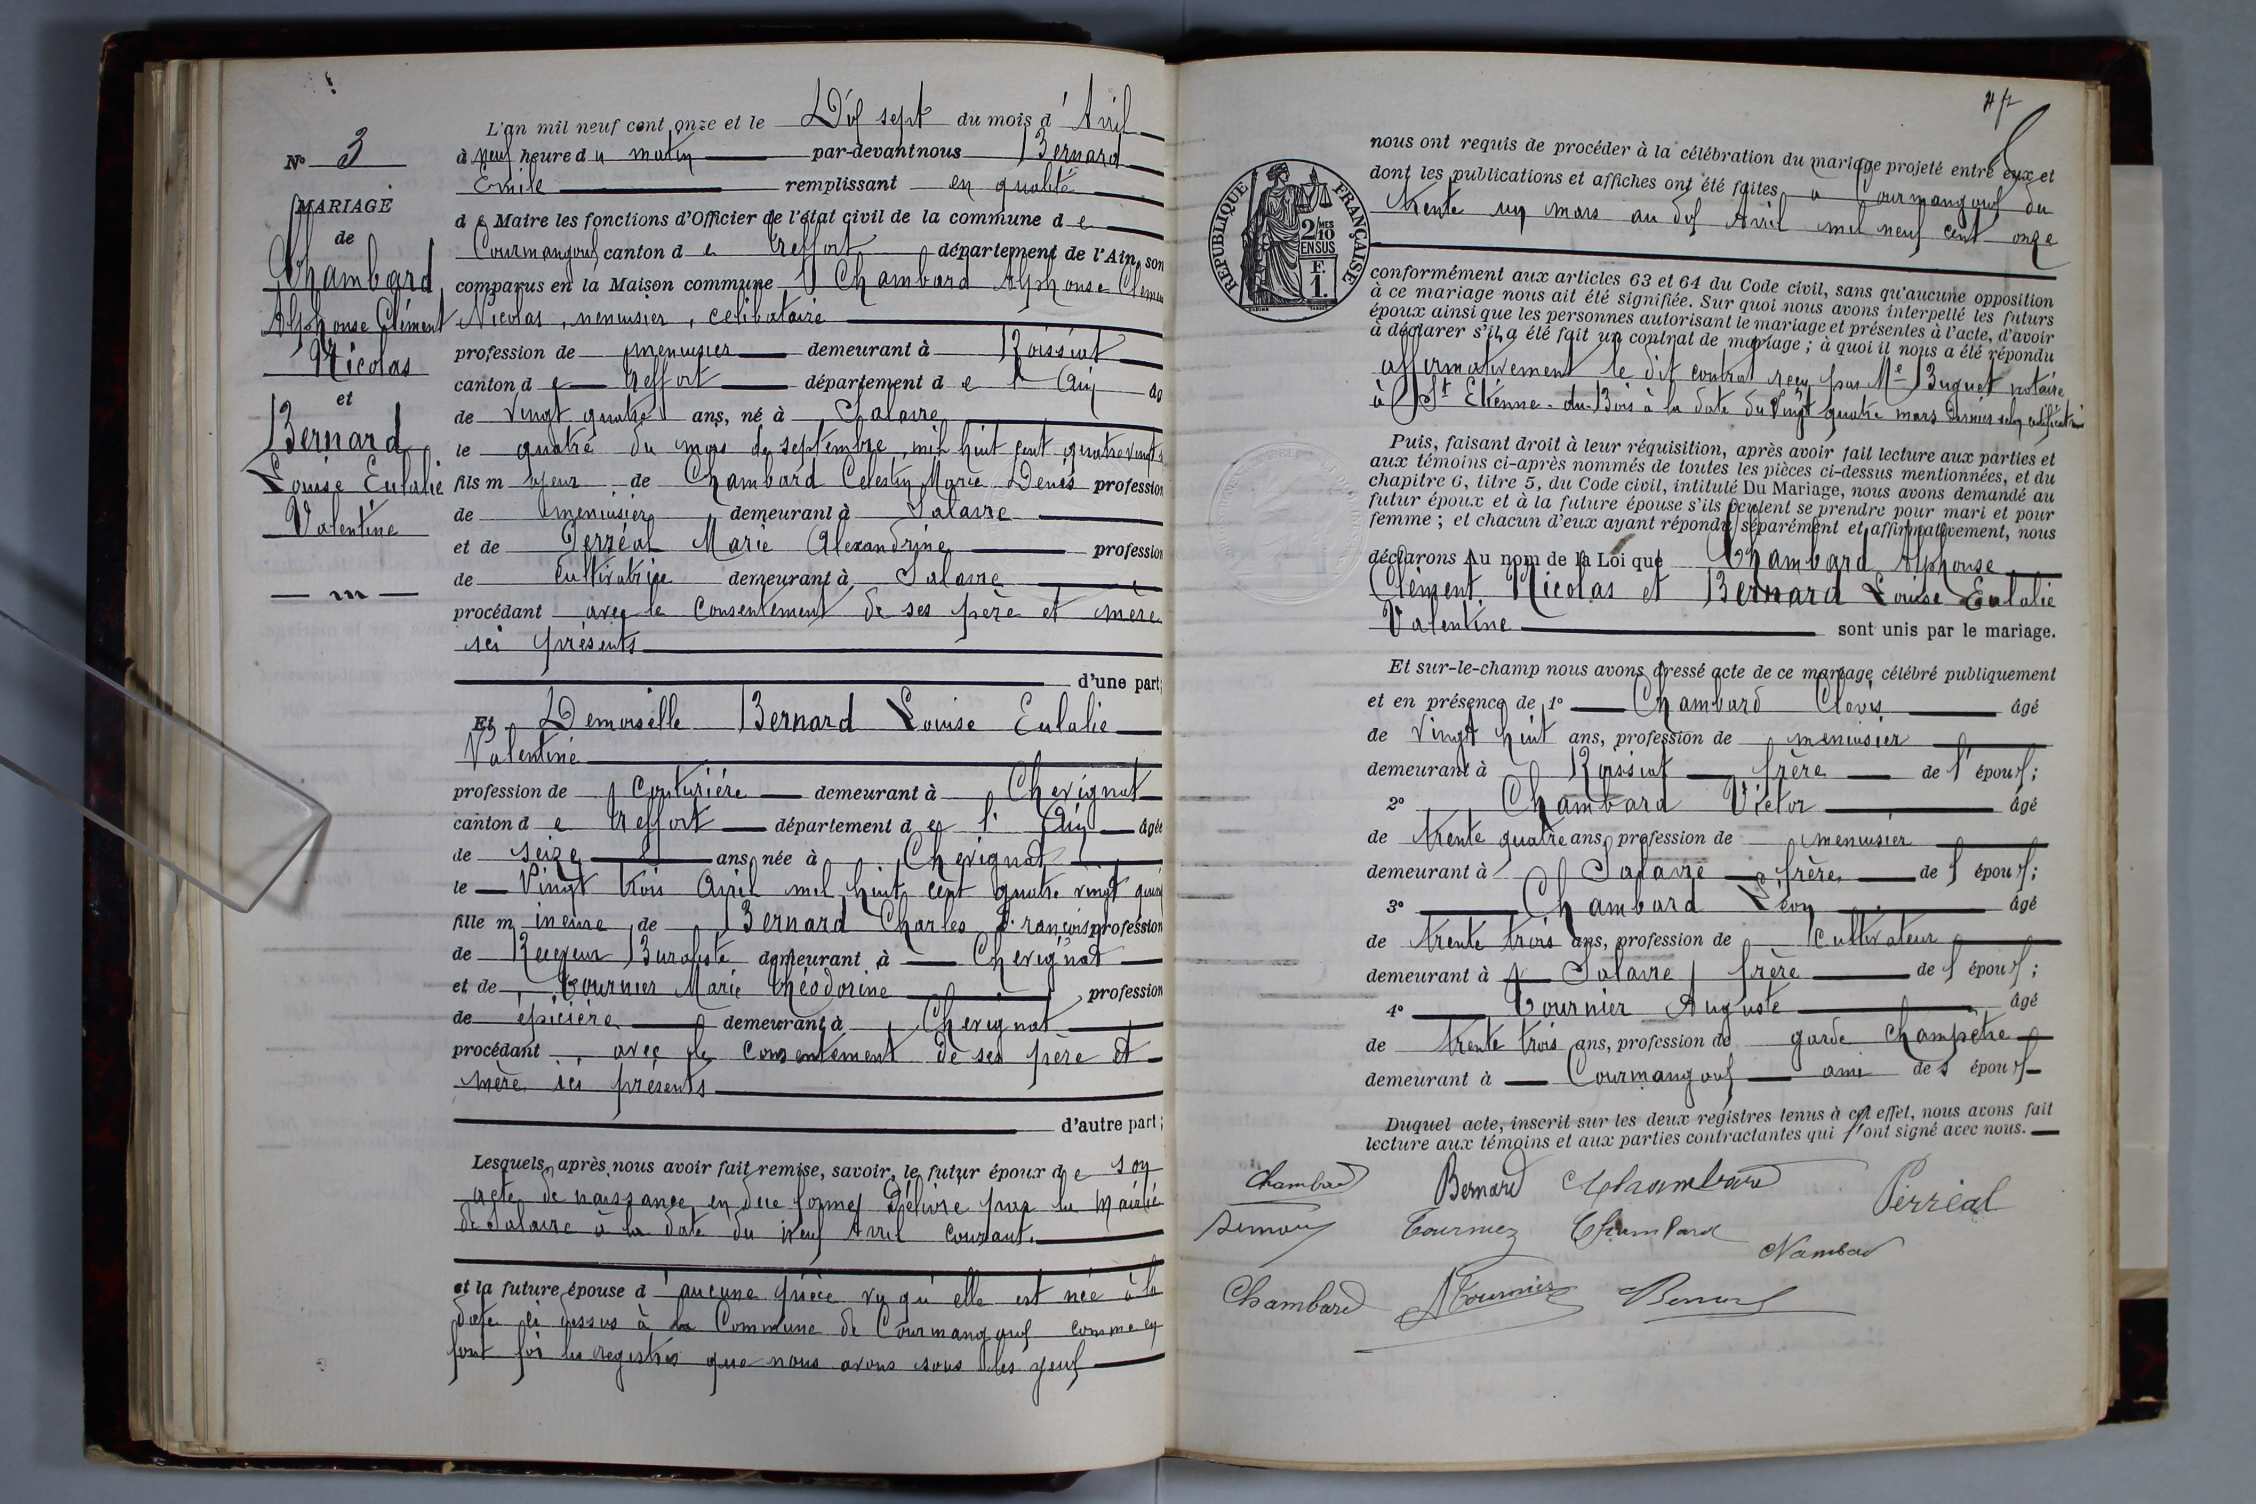 N° 3
MARIAGE
de
Chambard
Alphonse Clément
Nicolas
et
Bernard
Louise Eulalie
Valentine
L'an mil neuf cent onze et le Dix sept du mois d' Avril
à neuf heure du matin par-devant nous Bernard
Emile remplissant en qualité
de Maire les fonctions d'Officier de l'état civil de la commune de
Courmangoux canton de Treffort département de l'Ain, son
comparus en la Maison commune Chambard Alphonse Clément
Nicolas, menuisier, celibataire
profession de menuisier demeurant à Roissiat
canton de Treffort département de l'Ain
de vingt quatre ans, né à Salavre
le quatre du mois de septembre, mil huit cent quatre vingts
fils majeur de Chambard Celestin Marie Denis profession
de menuisier demeurant à Salavre
et de Perréal Marie Alexandrine profession
de cultivatrice demeurant à Salavre
procédant avec le consentement de ses père et mère
ici présents
d'une part;
Et Demoiselle Bernard Louise Eulalie
Valentine
profession de couturière demeurant à Chevignat
canton de Treffort département de l'Ain âgée
de seize ans, née à Chevignat
le Vingt trois Avril mil huit cent quatre vingt
fille mineure de Bernard Charles François profession
de Receveur Buraliste demeurant à Chevignat
et de Tournier Marie Théodorine profession
de épicière demeurant à Chevignat
procédant avec le consentement de ses père et
mère ici présents
d'autre part;
Lesquels, après nous avoir fait remise, savoir, le futur époux de son
acte de naissance en due forme Délivré par la Mairie
de Salavre à la date du neuf Avril courant.
et la future épouse d'aucune pièce vu qu'elle est née à la
date ci dessus à la Commune de Courmangoux comme en
font foi les registres que nous avons sous les yeux
47
RÉPUBLIQUE FRANÇAISE
2/10 MES
EN SUS
F.
1.
nous ont requis de procéder à la célébration du mariage projeté entre eux et
dont les publications et affiches ont été faites à Courmangoux du
trente un mars au dix Avril mil neuf cent onze
conformément aux articles 63 et 64 du Code civil, sans qu'aucune opposition
à ce mariage nous ait été signifiée. Sur quoi nous avons interpellé les futurs
époux ainsi que les personnes autorisant le mariage et présentes à l'acte, d'avoir
à déclarer s'il a été fait un contrat de mariage ; à quoi il nous a été répondu
affirmativement le dit contrat reçu par Me Buguet notaire
à St Etienne-du-Bois à la date du vingt quatre mars dernier selon
Puis, faisant droit à leur réquisition, après avoir fait lecture aux parties et
aux témoins ci-après nommés de toutes les pièces ci-dessus mentionnées, et du
chapitre 6, titre 5, du Code civil, intitulé Du Mariage, nous avons demandé au
futur époux et à la future épouse s'ils veulent se prendre pour mari et pour
femme ; et chacun d'eux ayant répondu séparément et affirmativement, nous
déclarons Au nom de la Loi que Chambard Alphonse
Clément Nicolas et Bernard Louise Eulalie
Valentine sont unis par le mariage.
Et sur-le-champ nous avons dressé acte de ce mariage célébré publiquement
et en présence de 1° Chambard Clovis âgé
de vingt huit ans, profession de menuisier
demeurant à Roissiat frère de l'époux;
2° Chambard Victor âgé
de trente quatre ans, profession de menuisier
demeurant à Salavre frère de l'époux;
3° Chambard Léon âgé
de trente trois ans, profession de cultivateur
demeurant à Salavre frère de l'époux;
4° Tournier Auguste âgé
de trente trois ans, profession de garde champêtre
demeurant à Courmangoux ami des époux
Duquel acte, inscrit sur les deux registres tenus à cet effet, nous avons fait
lecture aux témoins et aux parties contractantes qui l'ont signé avec nous.
Chambard Bernard Chambard Perréal
Tournier Chambard
Chambard ATournier Bernard